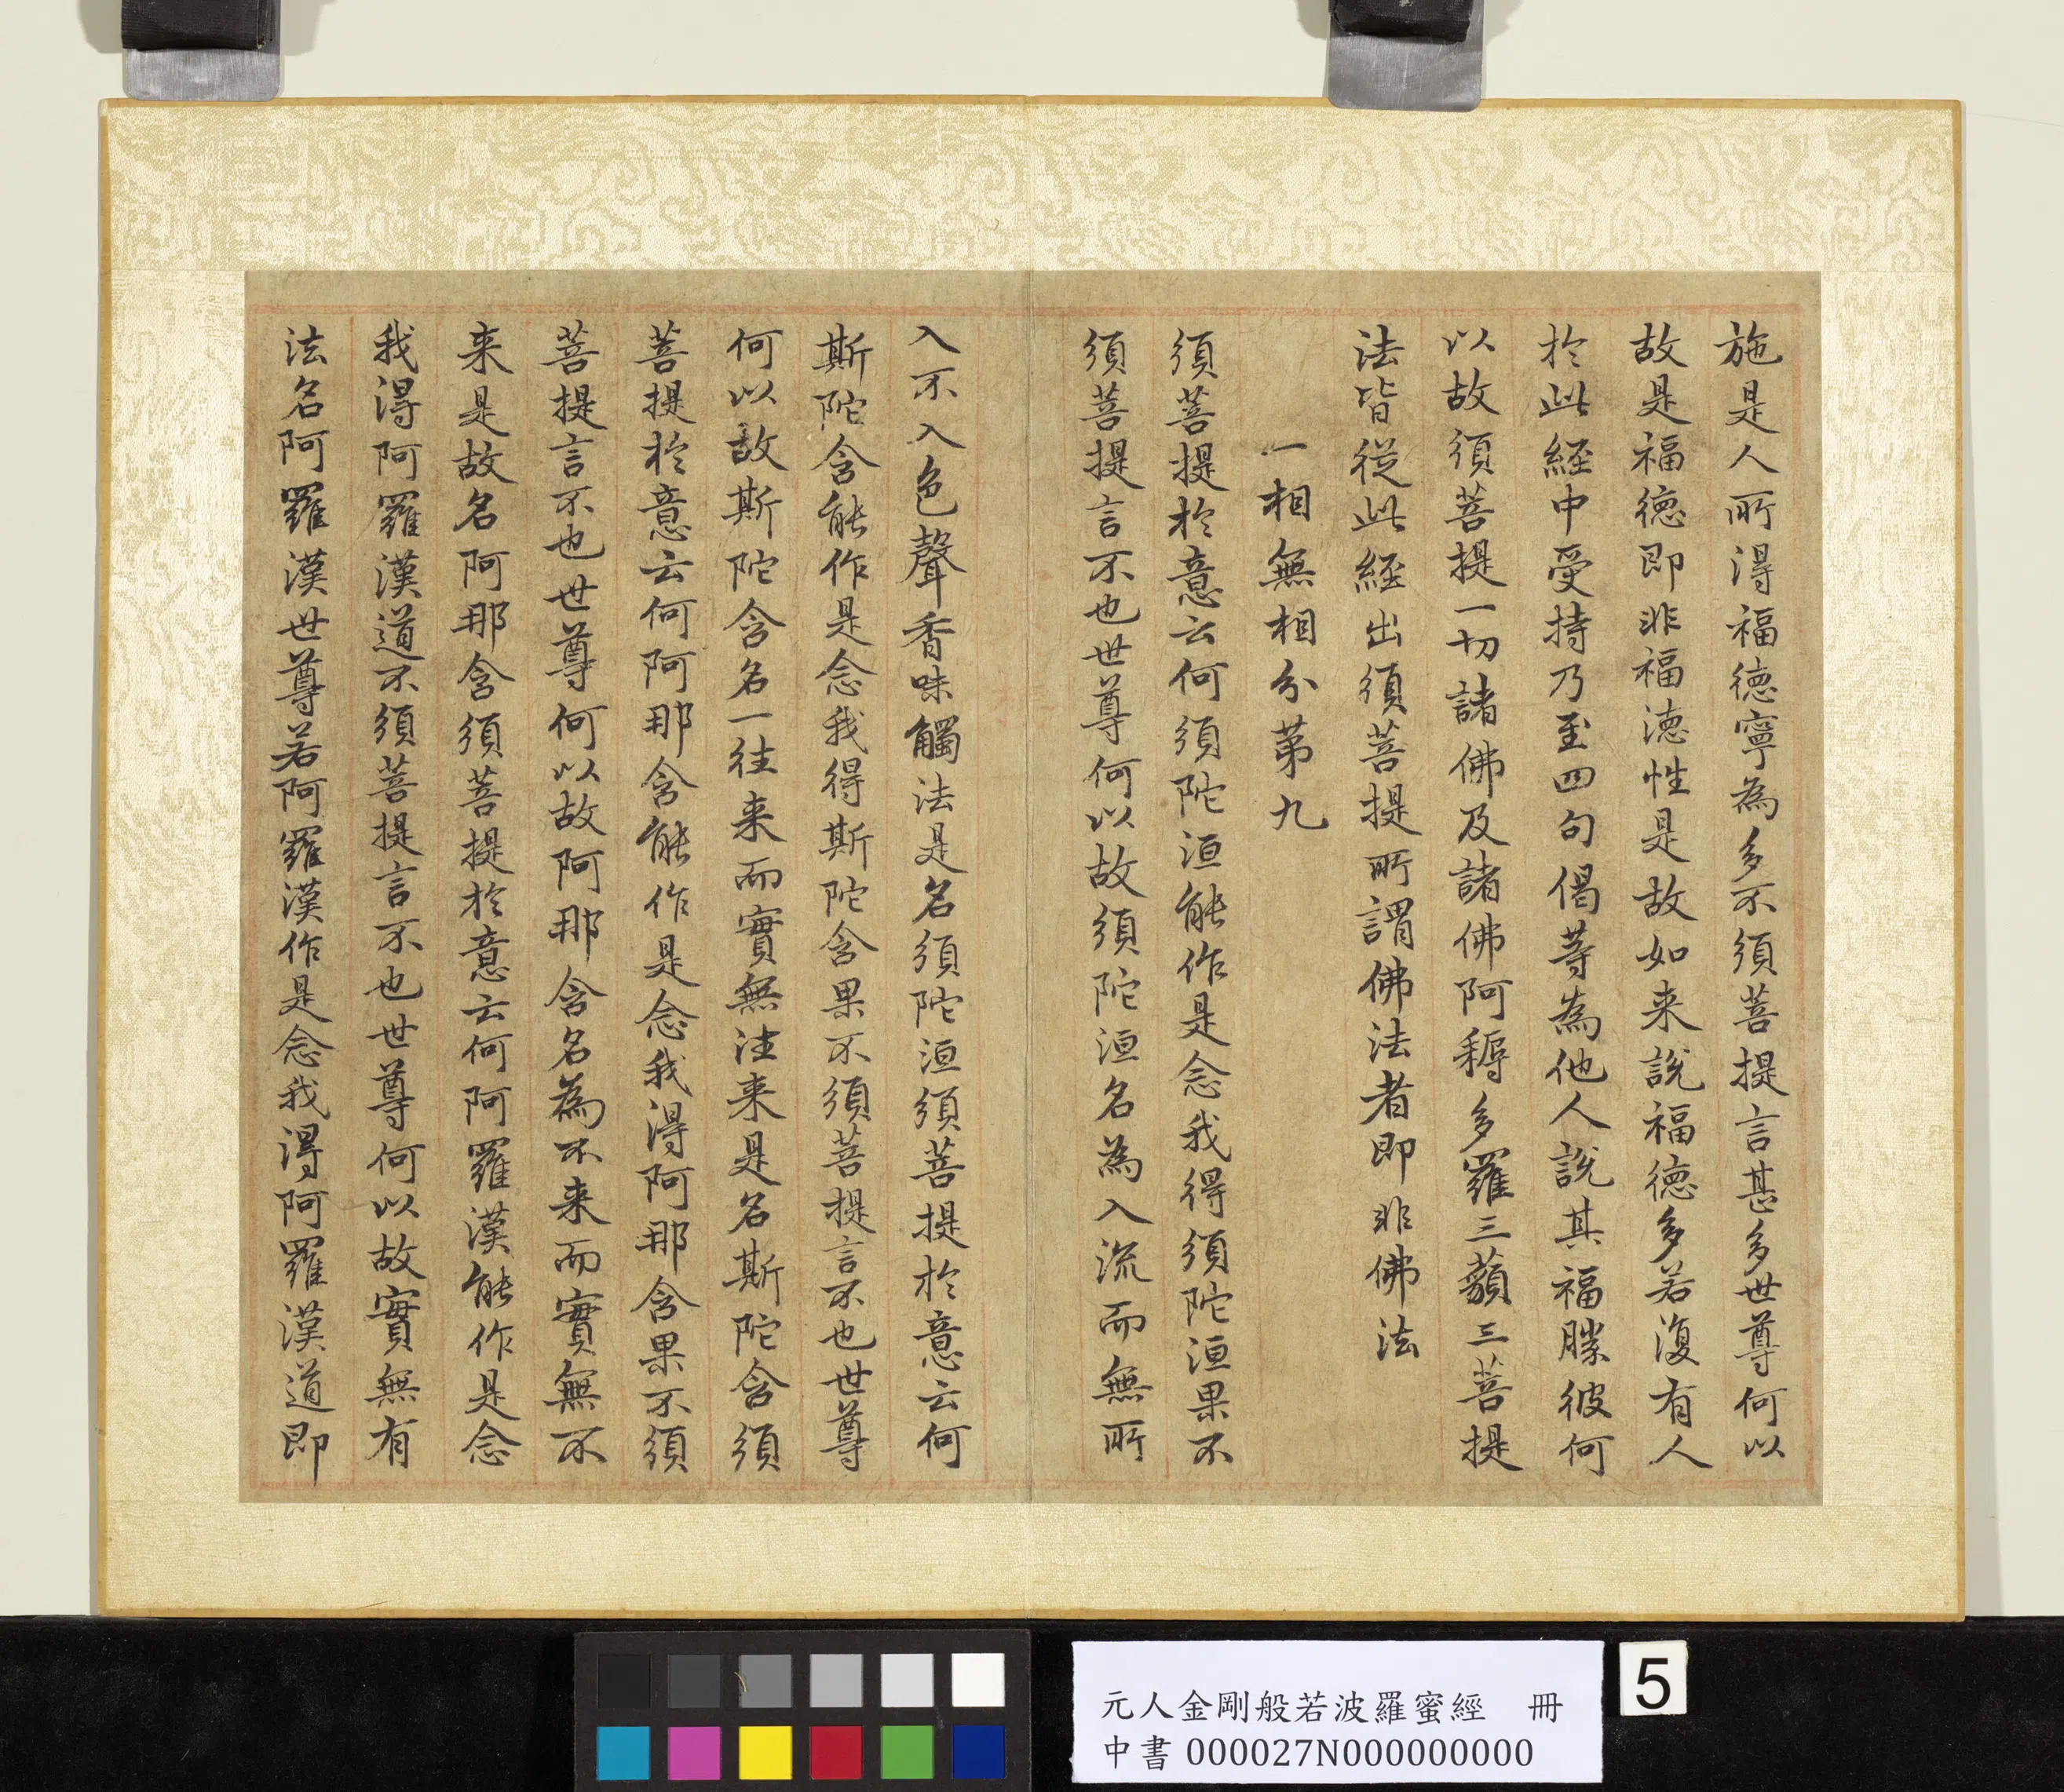 施是人所得福德寧為多不須菩提言甚多世尊何以
故是福德即非福德性是故如来說福德多若復有人
於此經中受持乃至四句偈等為他人說其福勝彼何
以故須菩提一切諸佛及諸佛阿耨多羅三藐三菩提
法皆從此經出須菩提所謂佛法者即非佛法
一相無相分第九
須菩提於意云何須陀洹能作是念我得須陀洹果不
須菩提言不也世尊何以故須陀洹名為入流而無所
入不入色聲香味觸法是名須陀洹須菩提於意云何
斯陀含能作是念我得斯陀含果不須菩提言不也世尊
何以故斯陀含名一往来而實無往来是名斯陀含須
菩提於意云何阿那含能作是念我得阿那含果不須
菩提言不也世尊何以故阿那含名為不来而實無不
来是故名阿那含須菩提於意云何阿羅漢能作是念
我得阿羅漢道不須菩提言不也世尊何以故實無有
法名阿羅漢世尊若阿羅漢作是念我得阿羅漢道即
元人金剛般若波羅蜜經 冊
中書 000027N000000000
5